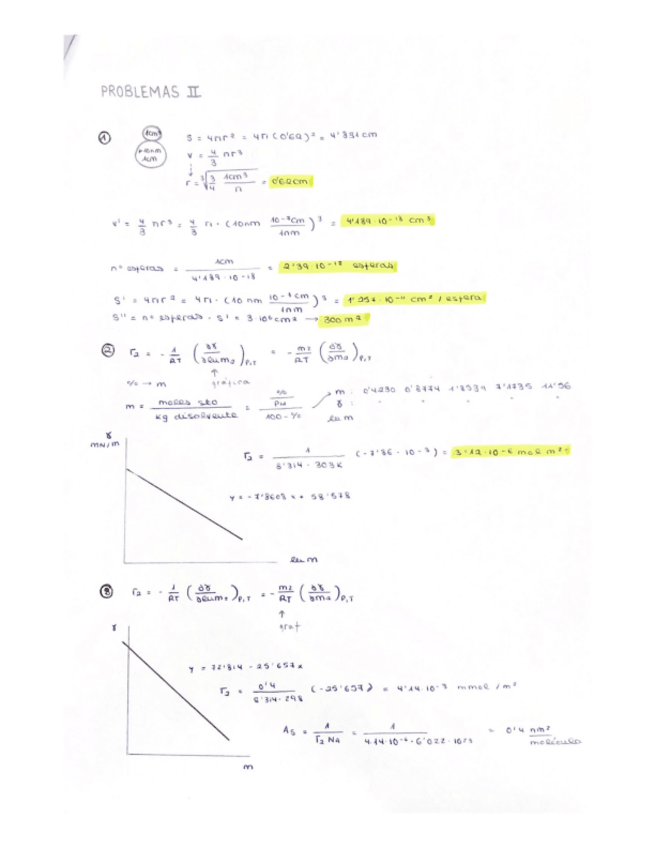 PROBLEMAS II
① 1cm³ S = 4πr² = 4π(0'62)² = 4'831cm
r=10nm 1cm V = 4/3 πr³
r = ³√(3/4 1cm³/π) = 0'62cm
V' = 4/3 πr³ = 4/3 π · (10nm 10⁻⁷cm/1nm)³ = 4'189·10⁻¹⁸ cm³
nº esferas = 1cm / 4'189·10⁻¹⁸ = 2'39·10⁻¹⁸ esferas
S' = 4πr² = 4π · (10 nm 10⁻⁷cm/1nm)² = 1'257·10⁻¹¹ cm² / esfera
S'' = nº esferas · S' = 3·10⁶cm² → 300 m²
② Γ₂ = - 1/RT (∂γ/∂lnm₂)P,T = - m₂/RT (∂γ/∂m₂)P,T
% → m gráfica
m = moles sto / kg disolvente = (%/PM) / (100-%) m: 0'4230 0'8774 7'1735 11'56
γ: " " " "
ln m
γ mN/m
Γ₂ = 1 / 8'314·303K (-7'86·10⁻³) = 3'12·10⁻⁶ mol m²
y = -7'8608x + 58'578
ln m
③ Γ₂ = - 1/RT (∂γ/∂lnm₂)P,T = - m₂/RT (∂γ/∂m₂)P,T
graf
γ
y = 72'314 - 25'657x
Γ₂ = 0'4 / 8'314·298 (-25'657) = 4'14·10⁻³ mmol / m²
As = 1 / Γ₂ NA = 1 / 4'14·10⁻⁶·6'022·10²³ = 0'4 nm²/molécula
m